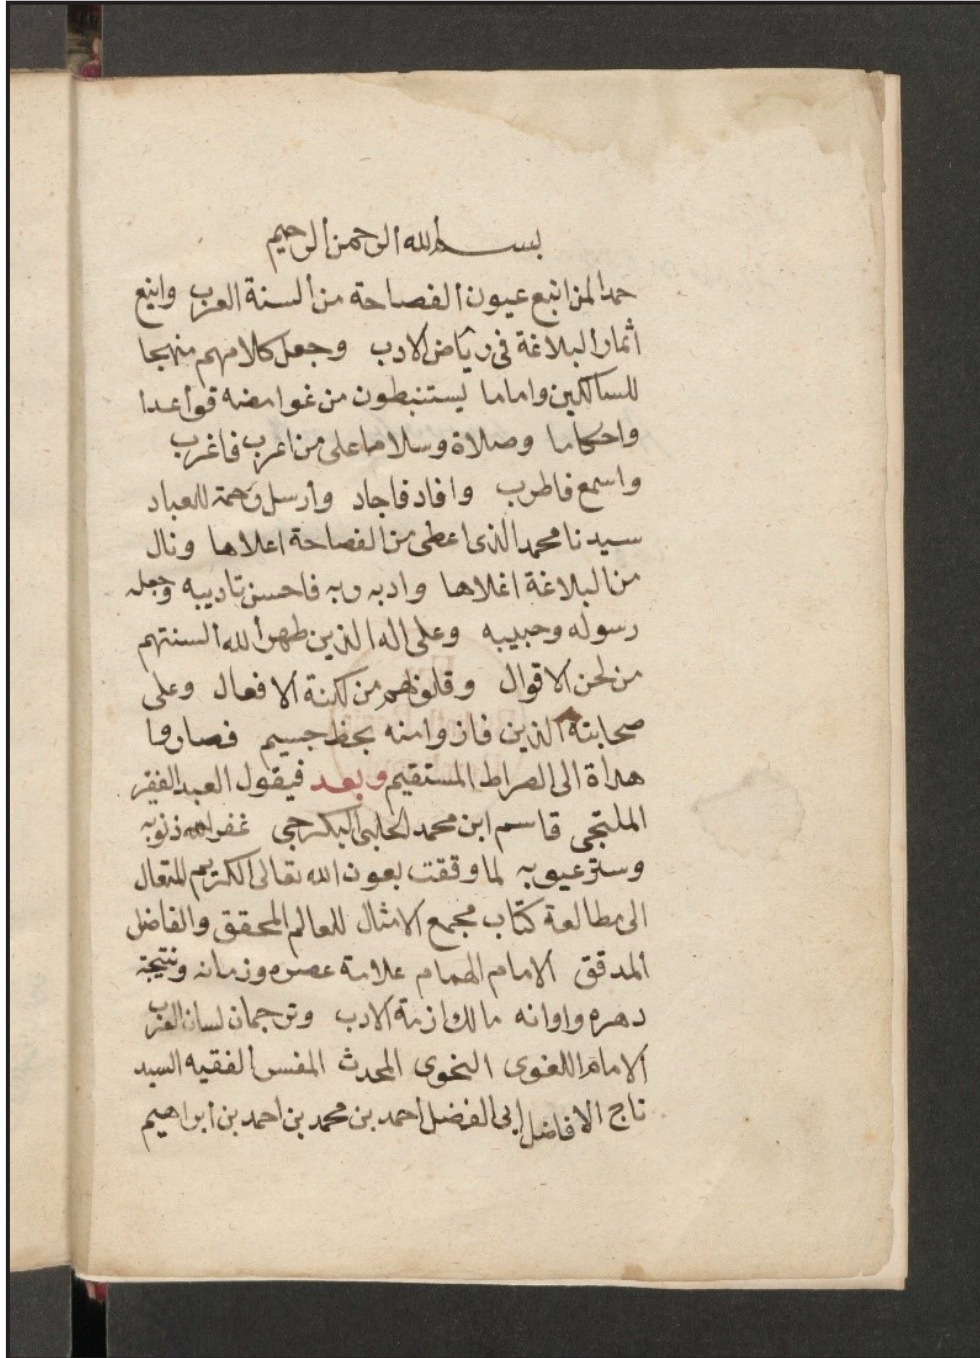 بسم الله الرحمن الرحيم
حمدا لمن انبع عيون الفصاحة من ألسنة العرب واينع
اثمار البلاغة فى رياض الادب وجعل كلامهم منهجا
للسالكين واماما يستنبطون من غوامضه قواعدا
واحكاما وصلاة وسلاما على من اعرب فاغرب
واسمع فاطرب وافاد فاجاد وأرسل رحمة للعباد
سيدنا محمد الذى اعطى من الفصاحة اعلاها ونال
من البلاغة اغلاها وادبه ربه فاحسن تاديبه وجعله
رسوله وحبيبه وعلى اله الذين طهر الله ألسنتهم
من لحن الاقوال وقلوبهم من لكنة الافعال وعلى
صحابته الذين فازوا منه بحظ جسيم فصاروا
هداة الى الصراط المستقيم وبعد فيقول العبد الفقير
الملتجى قاسم ابن محمد الحلبى البكرجى غفر الله ذنوبه
وستر عيوبه لما وفقت بعون الله تعالى الكريم المتعال
الى مطالعة كتاب مجمع الامثال للعالم المحقق والفاضل
المدقق الامام الهمام علامة عصره وزمانه ونتيجة
دهره واوانه مالك ازمة الادب وترجمان لسان العرب
الامام اللغوى النحوى المحدث المفسر الفقيه السيد
تاج الافاضل ابى الفضل احمد بن محمد بن احمد بن ابراهيم